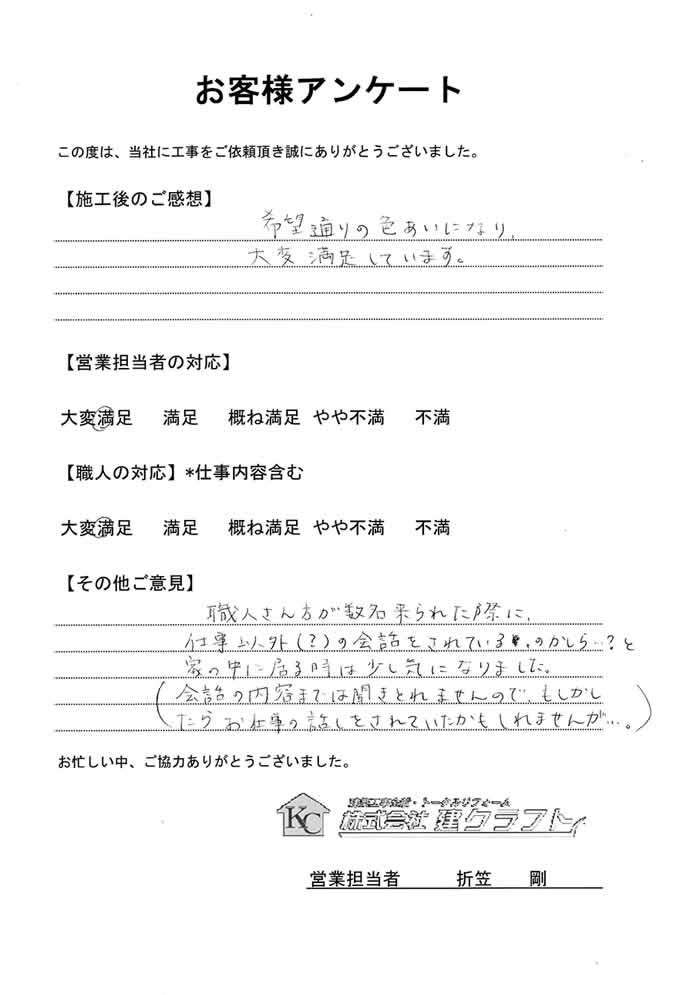 お客様アンケート
この度は、当社に工事をご依頼頂き誠にありがとうございました。
【施工後のご感想】
希望通りの色あいになり、
大変満足しています。
【営業担当者の対応】
大変満足 満足 概ね満足 やや不満 不満
【職人の対応】*仕事内容含む
大変満足 満足 概ね満足 やや不満 不満
【その他ご意見】
職人さん方が数名来られた際に、
仕事以外(?)の会話をされている のかしら…?と
家の中に居る時は少し気になりました。
(会話の内容までは聞きとれませんので、もしかし
たらお仕事の話しをされていたかもしれませんが…。)
お忙しい中、ご協力ありがとうございました。
KC
・トータルリフォーム
株式会社 建クラフト
営業担当者 折笠 剛